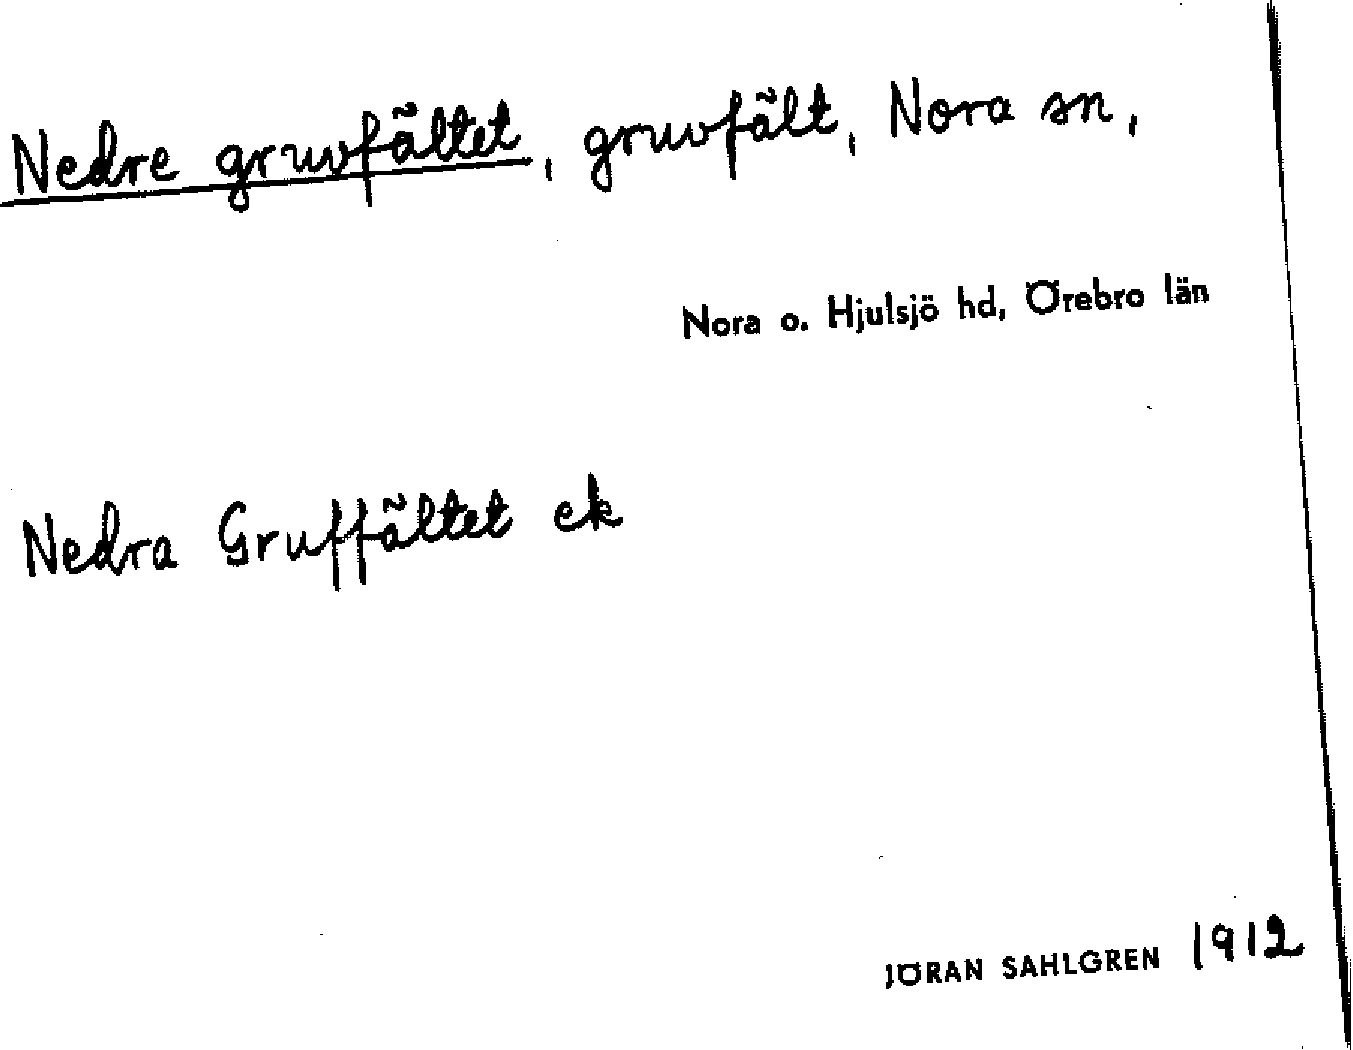 Nedre gruvfältet, gruvfält, Nora sn,
Nora o. Hjulsjö hd, Örebro län
Nedra Gruffältet ek
JÖRAN SAHLGREN 1912